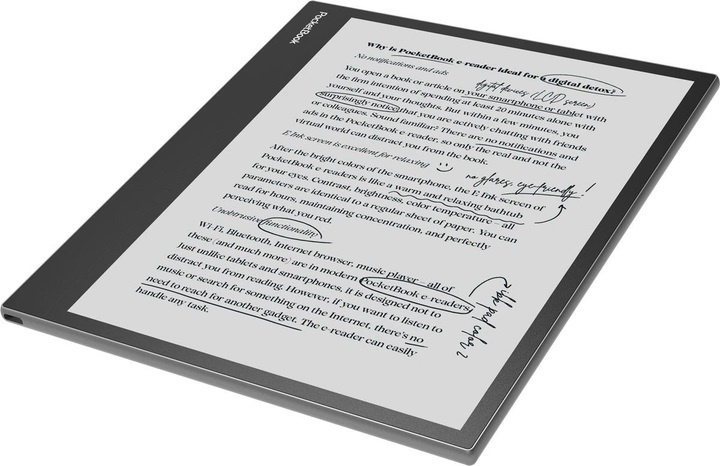 PocketBook
Why is PocketBook e-reader ideal for a digital detox?
No notifications and ads
digital glasses (LCD screen)
You open a book or article on your smartphone or tablet with
the firm intention of spending at least 20 minutes alone with
yourself and your thoughts. But within a few minutes, you
surprisingly notice that you are actively charting with friends
or colleagues. Sound familiar? There are no notifications and
ads in the PocketBook e-reader, so only the real and not the
virtual world can distract you from the book.
E Ink screen is excellent for relaxing
no glares, eye-friendly!
After the bright colors of the smartphone, the E Ink screen of
PocketBook e-readers is like a warm and relaxing bathtub
for your eyes. Contrast, brightness, color temperature – all
parameters are identical to a regular sheet of paper. You can
read for hours, maintaining concentration, and perfectly
perceiving what you red.
Unobtrusive functionality
Wi-Fi, Bluetooth, Internet browser, music player – all of
these (and much more) are in modern PocketBook e-readers.
Just unlike tablets and smartphones, it is designed not to
distract you from reading. However, if you want to listen to
music or search for something on the Internet, there's no
need to reach for another gadget. The e-reader can easily
handle any task.